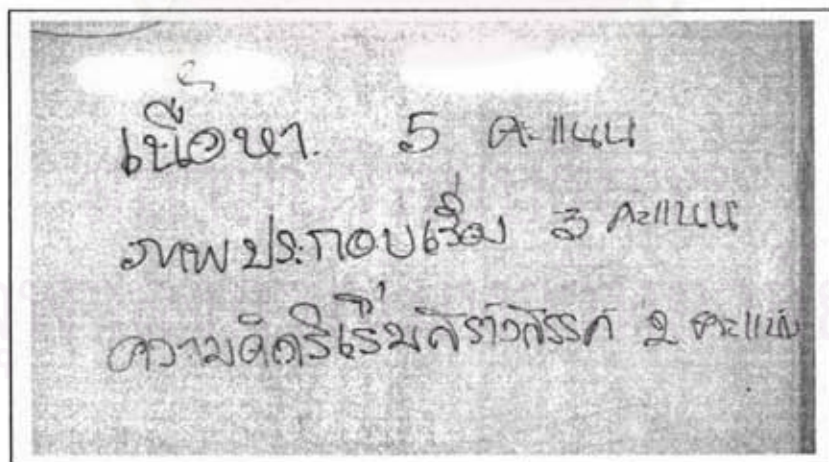 เนื้อหา 5 คะแนน
ภาพประกอบเรื่อง 3 คะแนน
ความคิดริเริ่มสร้างสรรค์ 2 คะแนน